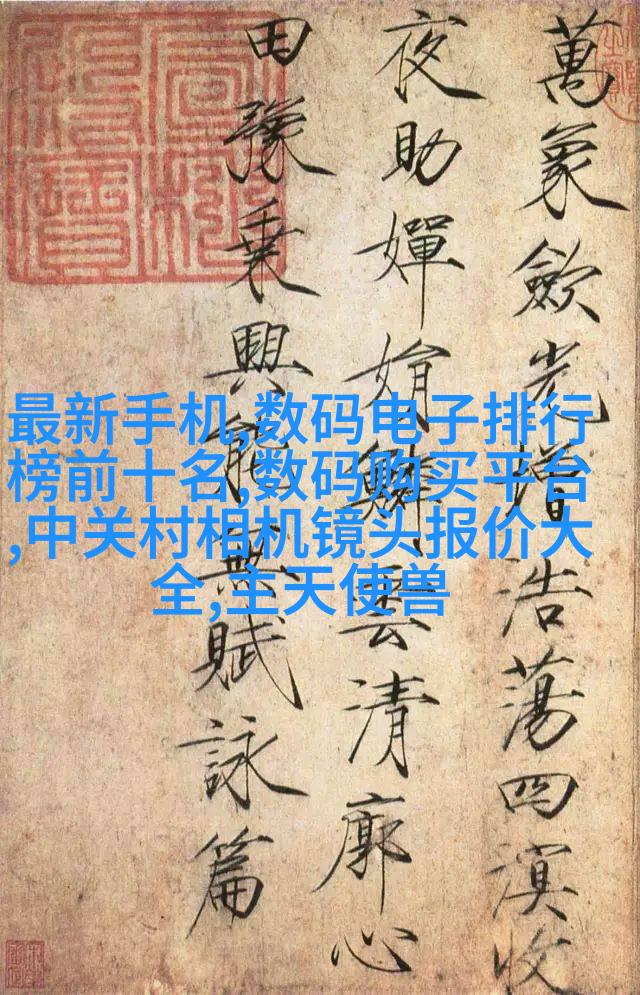 萬象歛光增浩蕩四溟收
夜助嬋娟鱗雲清廓心
田豫乗興能無賦詠篇
最新手机,数码电子排行
榜前十名,数码购买平台
,中关村相机镜头报价大
全,主天使兽